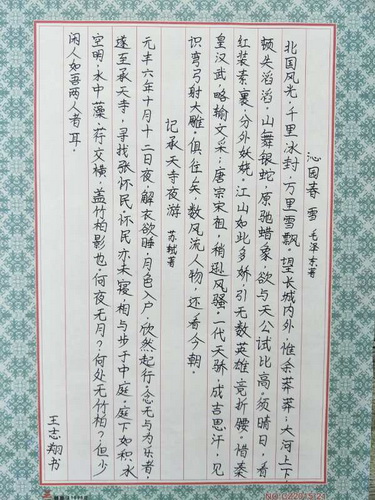 沁园春 雪 毛泽东著
北国风光,千里冰封,万里雪飘。望长城内外,惟余莽莽;大河上下
顿失滔滔。山舞银蛇,原驰蜡象,欲与天公试比高。须晴日,看
红装素裹,分外妖娆。江山如此多娇,引无数英雄竞折腰。惜秦
皇汉武,略输文采;唐宗宋祖,稍逊风骚。一代天骄,成吉思汗,见
识弯弓射大雕。俱往矣,数风流人物,还看今朝。
记承天寺夜游 苏轼著
元丰六年十月十二日夜,解衣欲睡,月色入户,欣然起行。念无与为乐者,
遂至承天寺,寻找张怀民。怀民亦未寝,相与步于中庭。庭下如积水
空明,水中藻荇交横,盖竹柏影也。何夜无月?何处无竹柏?但少
闲人如吾两人者耳。
王志翔书